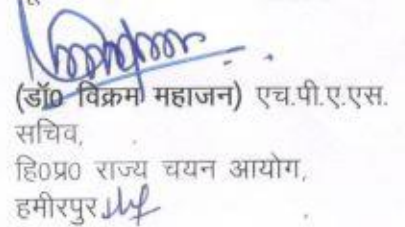 (डॉ0 विक्रम महाजन) एच.पी.ए.एस.
सचिव,
हि0प्र0 राज्य चयन आयोग,
हमीरपुर